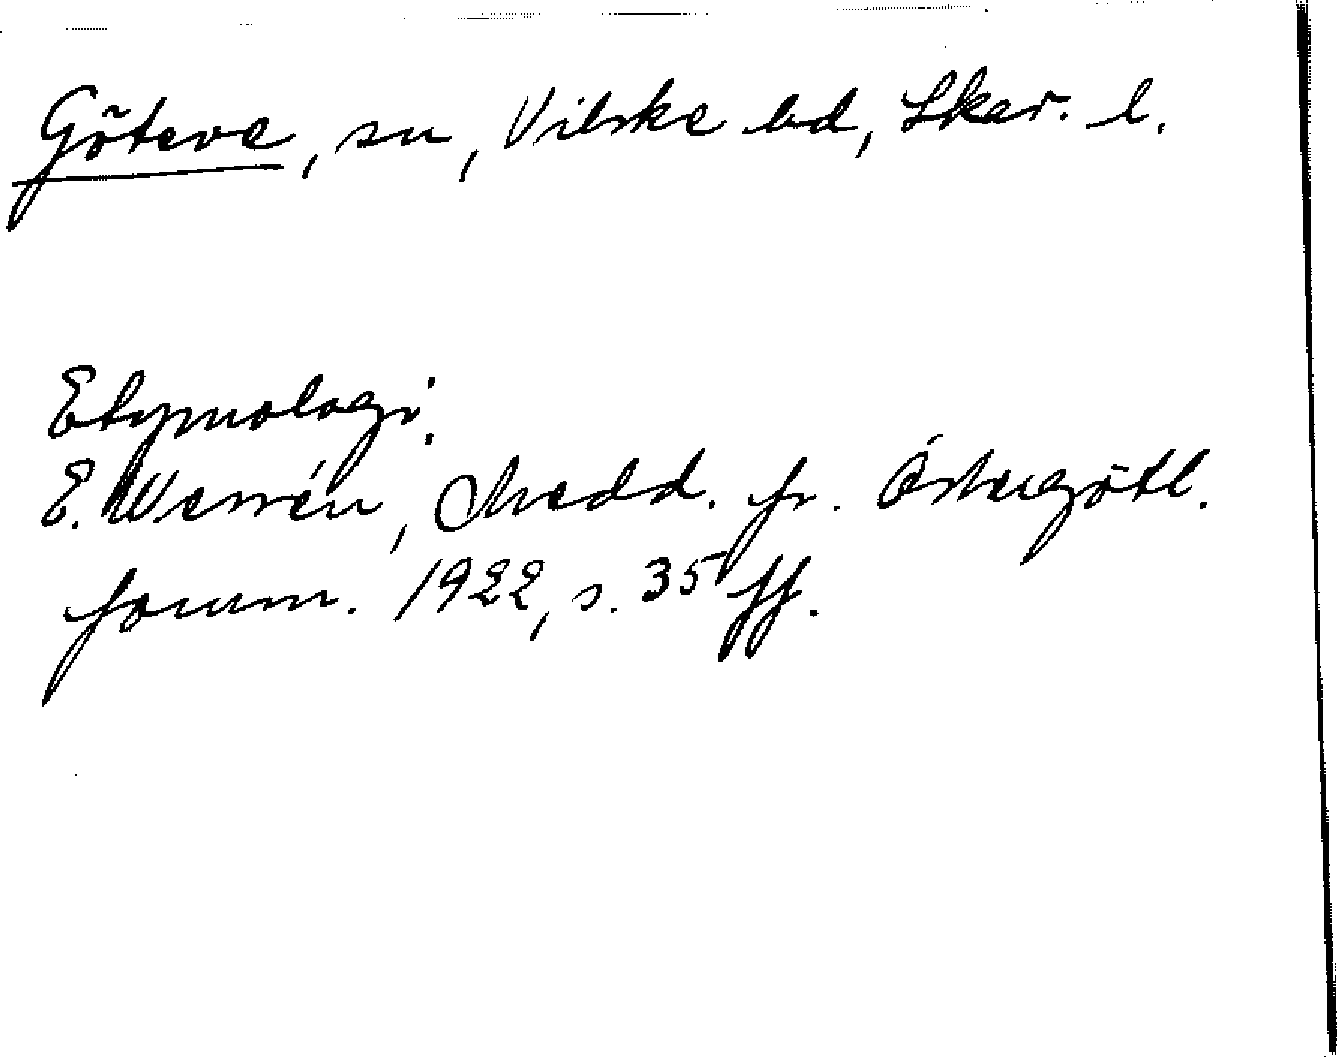 Göteve, sn, Vilske hd, Skar. l.
Etymologi.
E. Wessén, Medd. fr. Östergötl.
fornm. 1922, s. 35 ff.